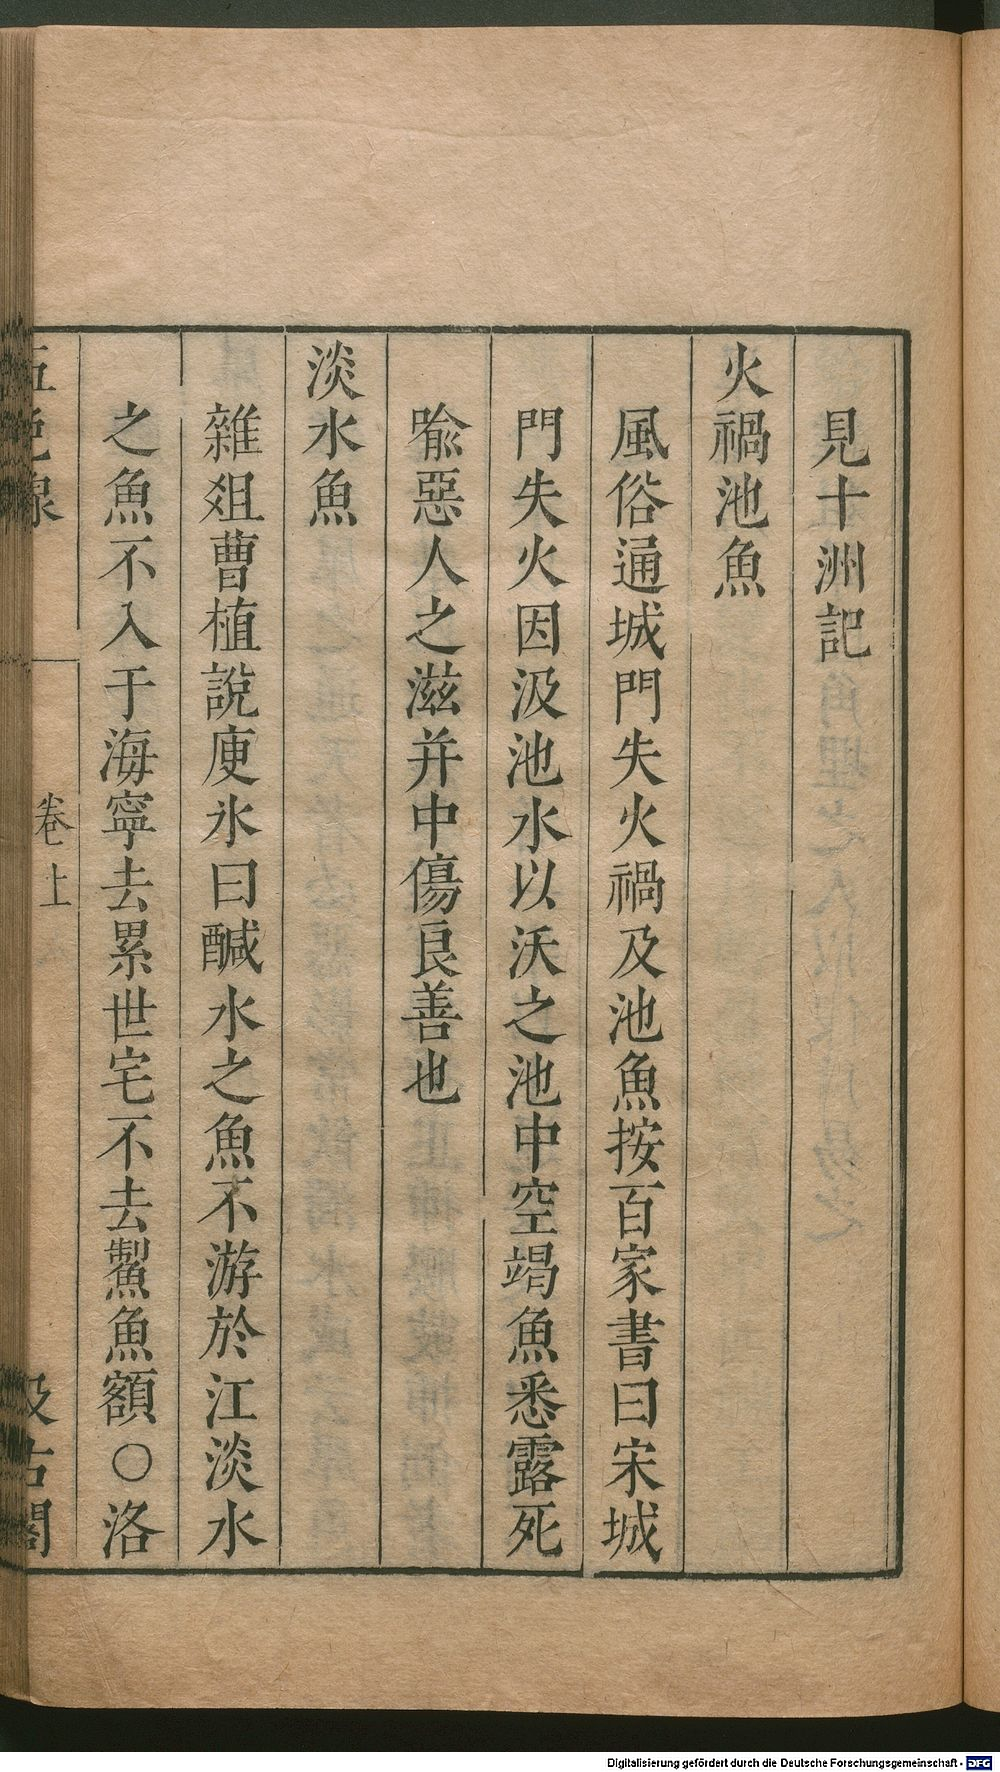 見十洲記
火禍池魚
風俗通城門失火禍及池魚按百家書曰宋城
門失火因汲池水以沃之池中空竭魚悉露死
喩惡人之滋并中傷良善也
淡水魚
雜爼曹植說庾氷曰醎水之魚不游於江淡水
之魚不入于海寧去累世宅不去鮆魚額○洛
卷上
汲古閣
Digitalisierung gefördert durch die Deutsche Forschungsgemeinschaft - DFG